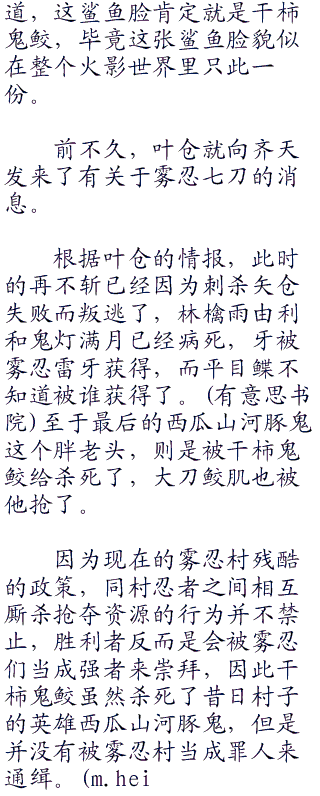 道，这鲨鱼脸肯定就是干柿
鬼鲛，毕竟这张鲨鱼脸貌似
在整个火影世界里只此一
份。
前不久，叶仓就向齐天
发来了有关于雾忍七刀的消
息。
根据叶仓的情报，此时
的再不斩已经因为刺杀矢仓
失败而叛逃了，林檎雨由利
和鬼灯满月已经病死，牙被
雾忍雷牙获得，而平目鲽不
知道被谁获得了。(有意思书
院)至于最后的西瓜山河豚鬼
这个胖老头，则是被干柿鬼
鲛给杀死了，大刀鲛肌也被
他抢了。
因为现在的雾忍村残酷
的政策，同村忍者之间相互
厮杀抢夺资源的行为并不禁
止，胜利者反而是会被雾忍
们当成强者来崇拜，因此干
柿鬼鲛虽然杀死了昔日村子
的英雄西瓜山河豚鬼，但是
并没有被雾忍村当成罪人来
通缉。(m.hei